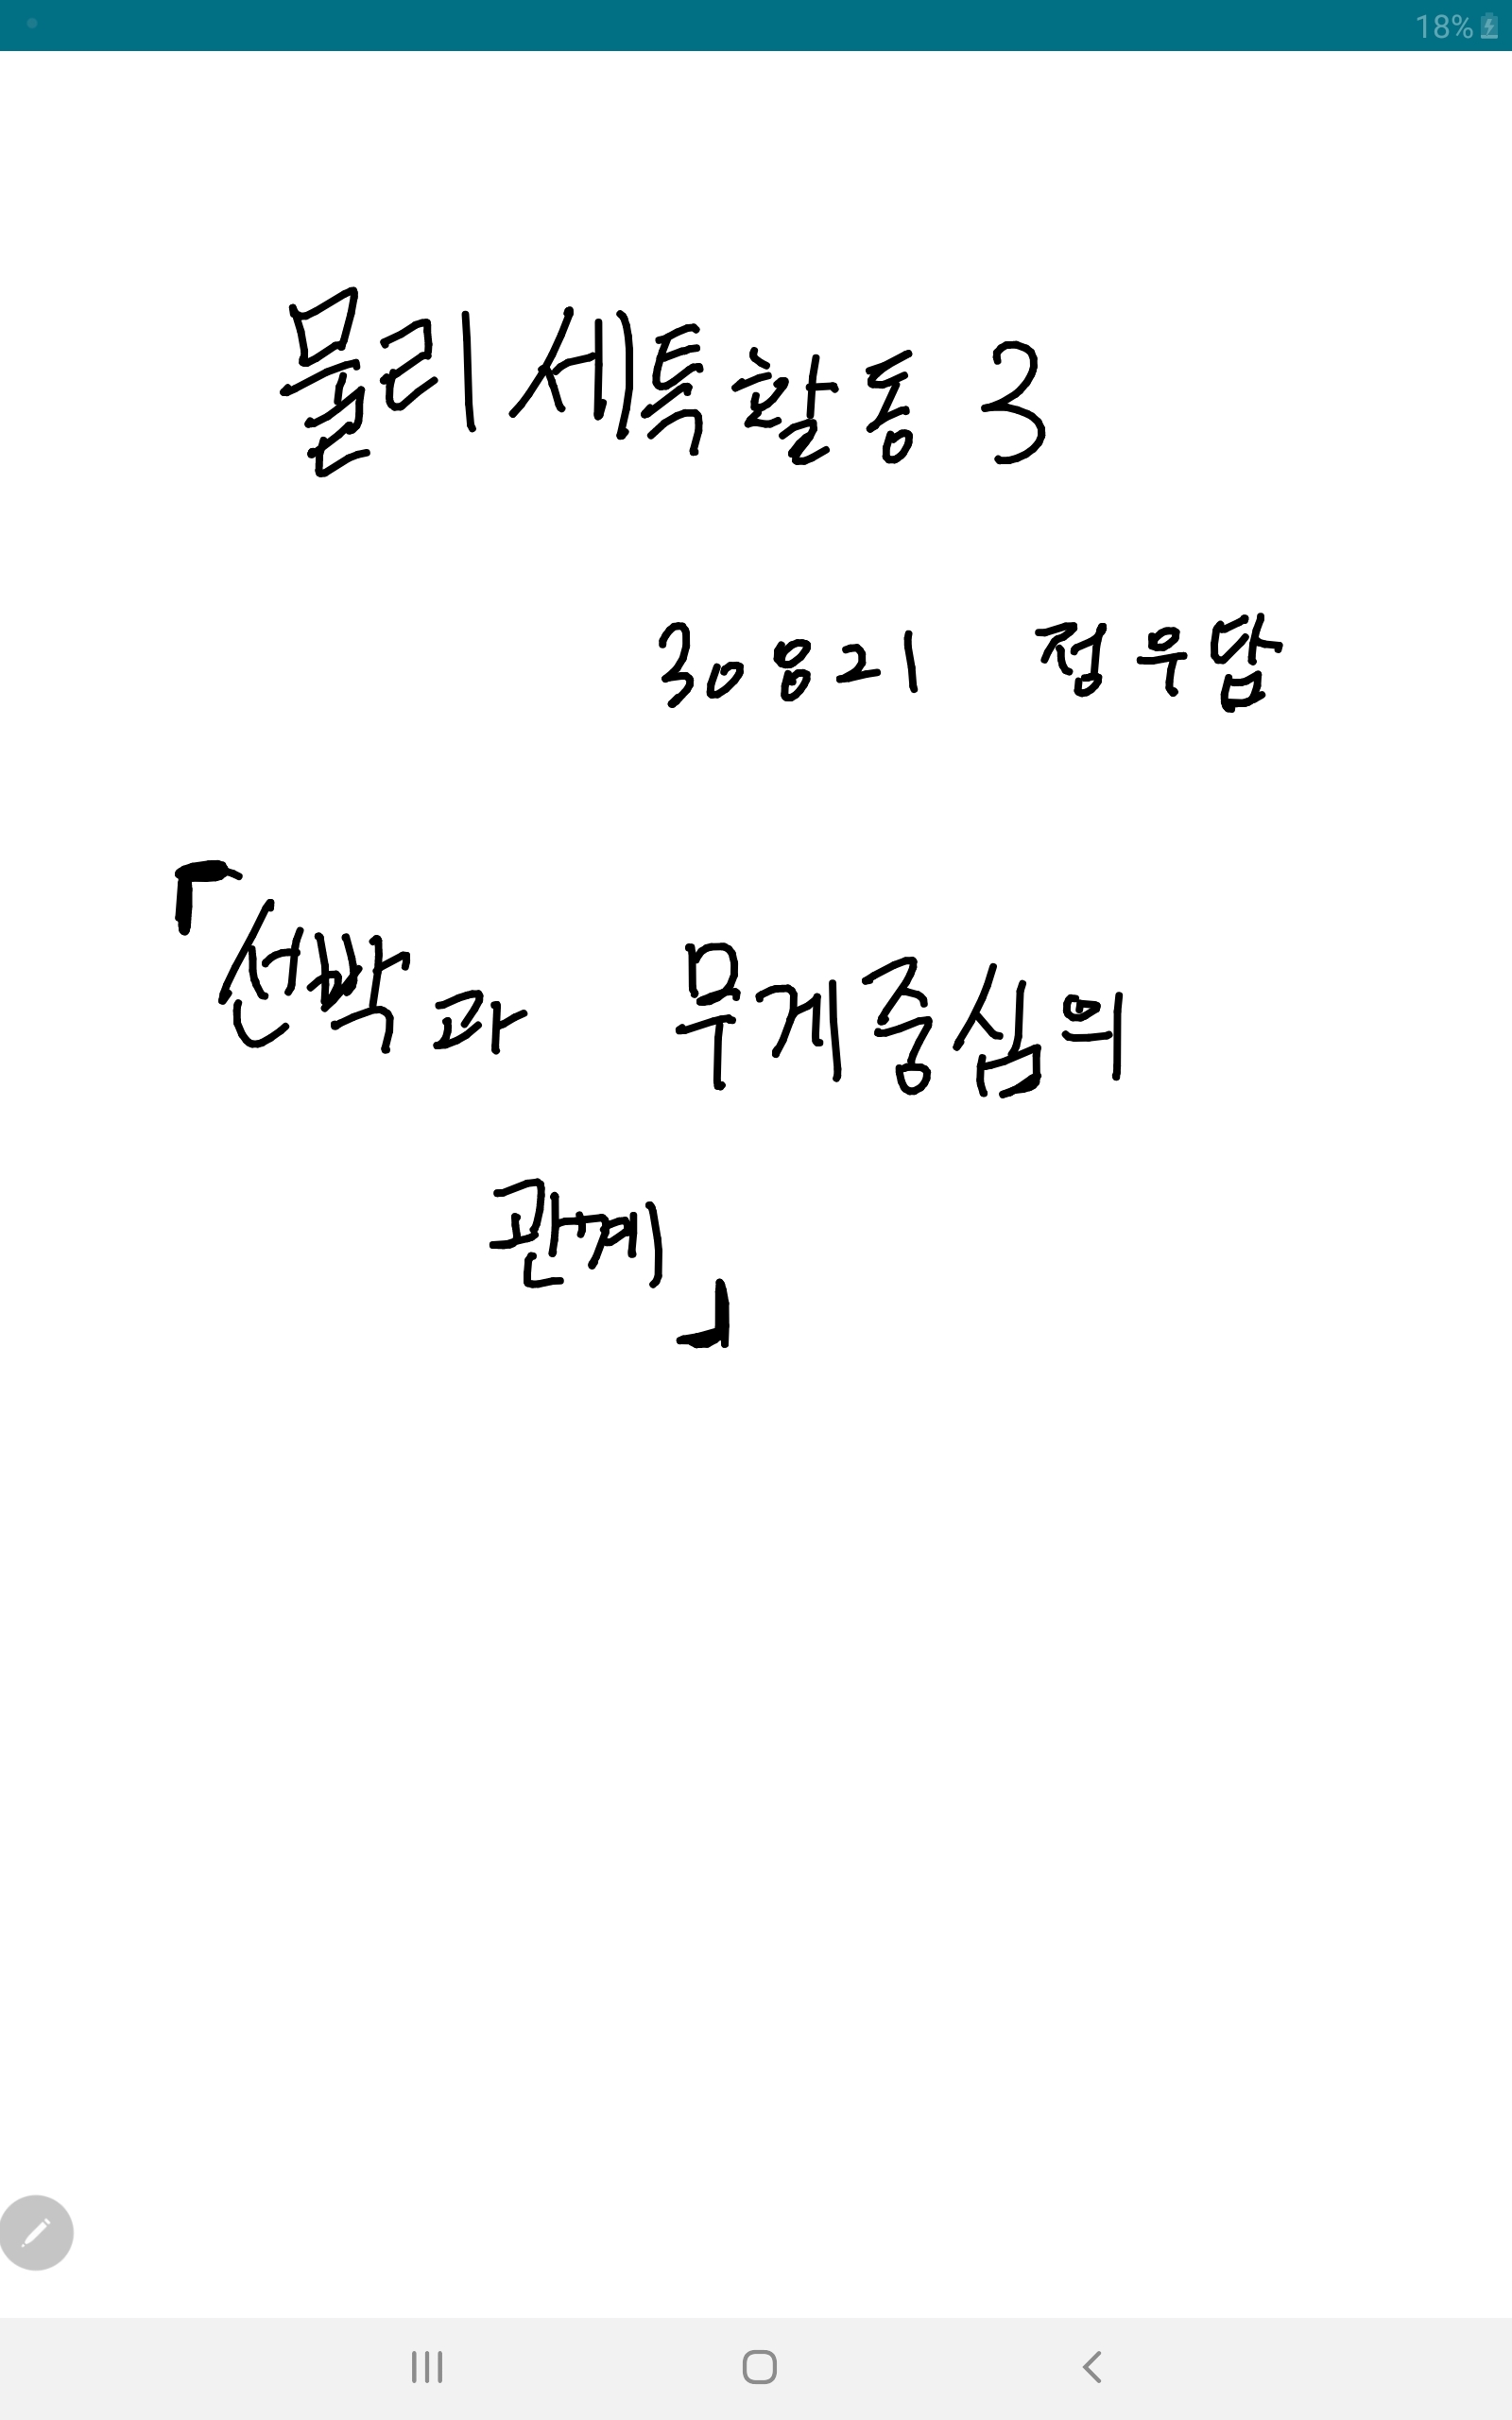 18%
물리 세특 활동 3
30821 정우담
「선박과 무게중심의
관계」